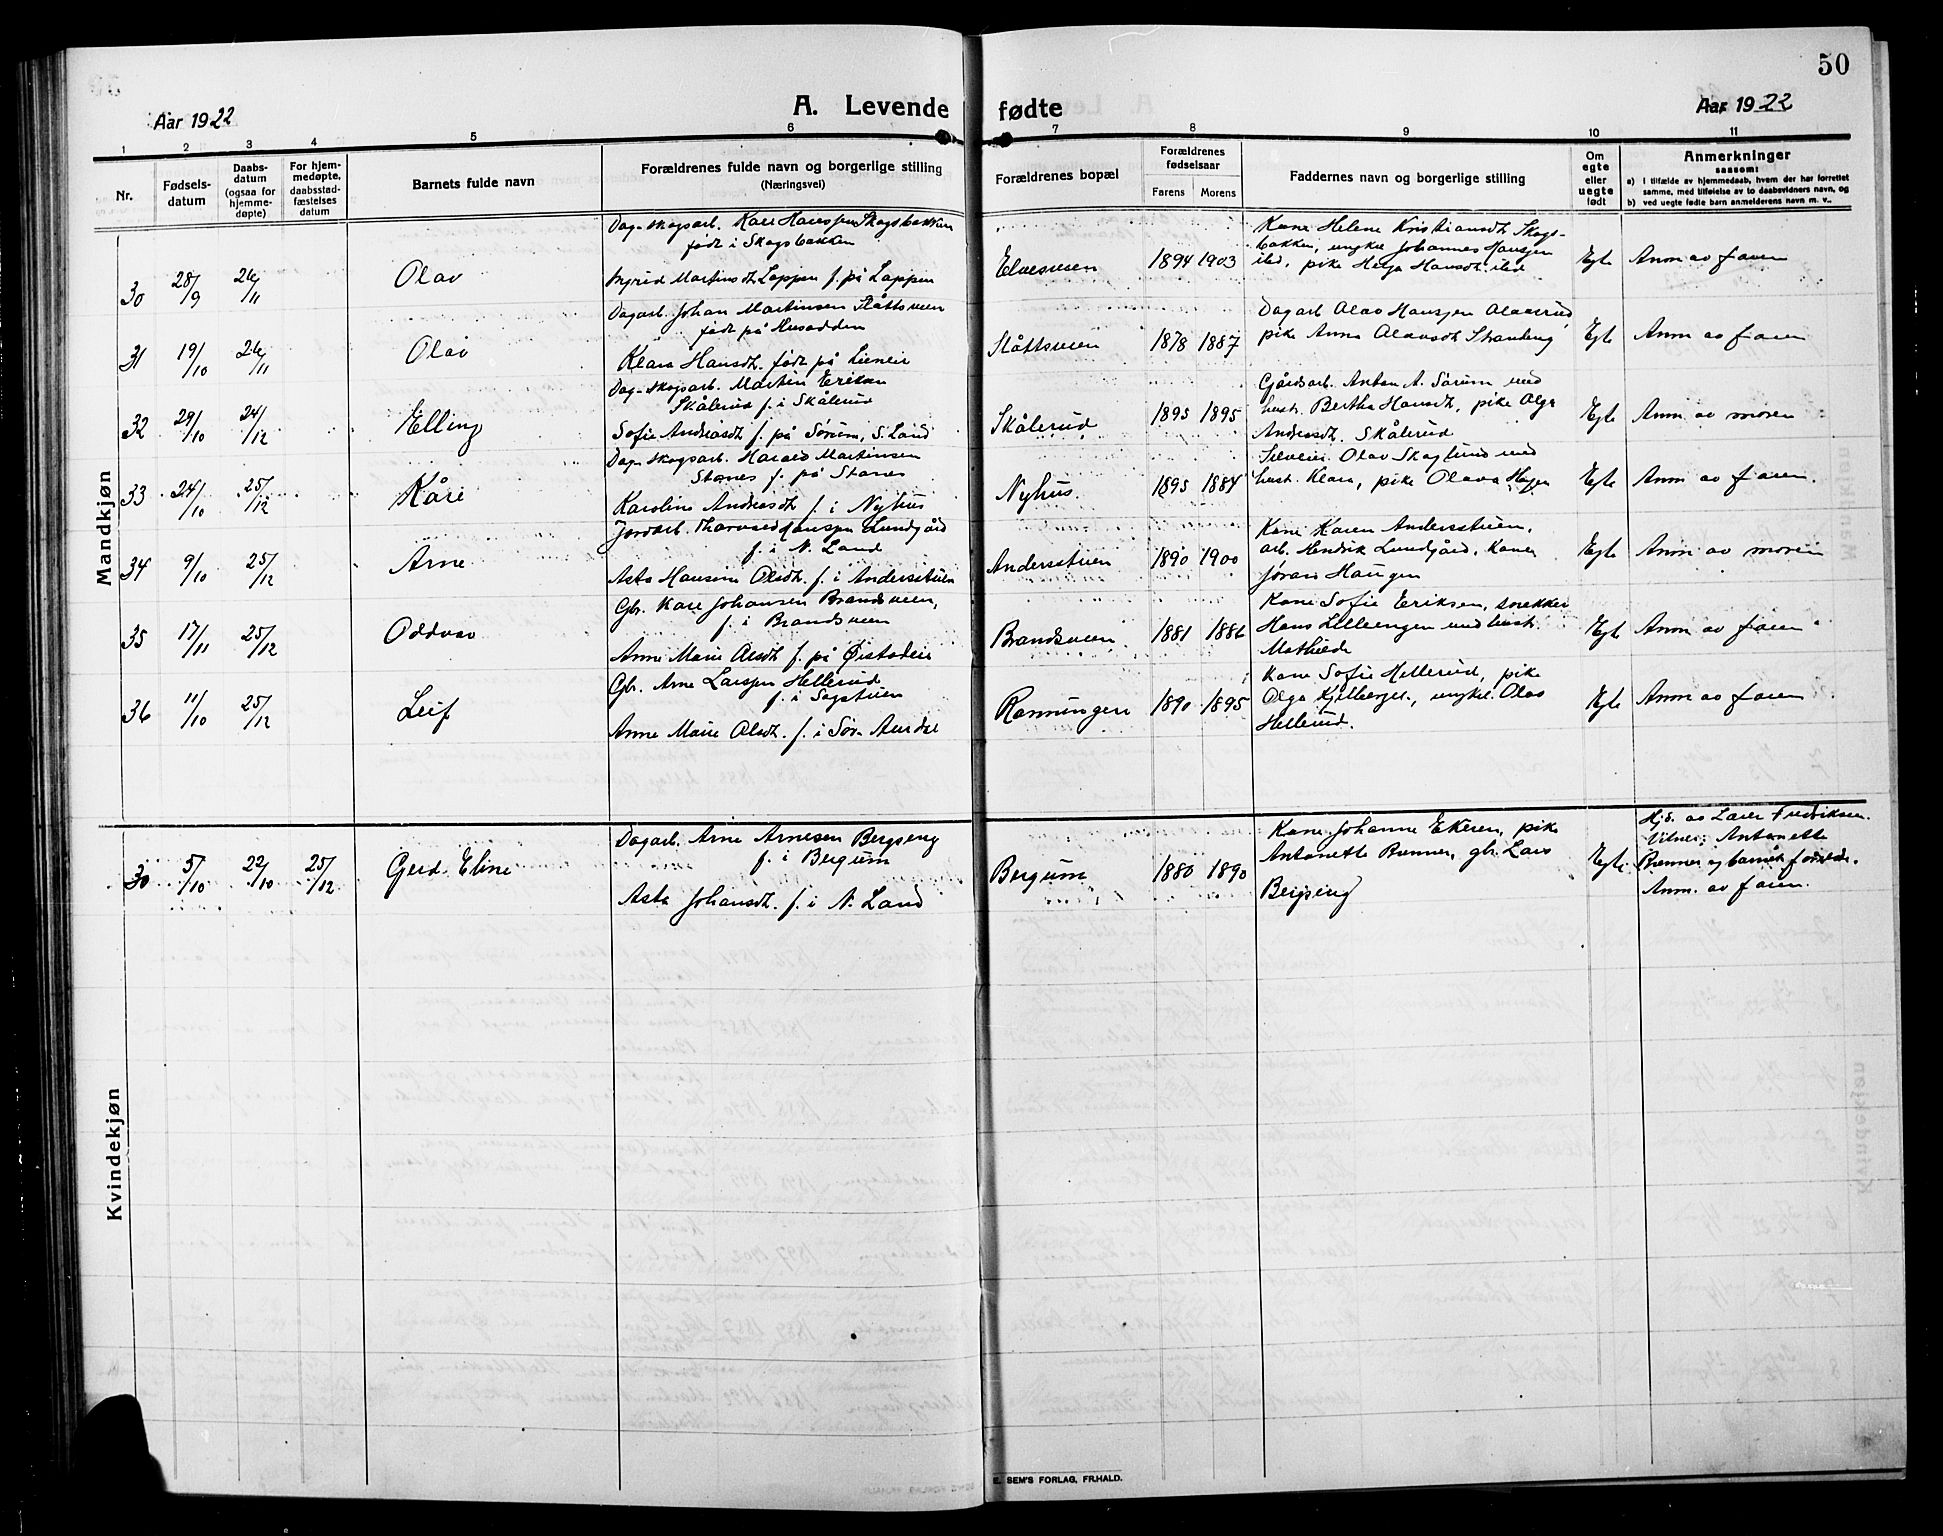 50
Aar 1922
A. Levende fødte
Aar 1922
1 2 3 4 5 6 7 8 9 10 11
Nr.
Fødsels-
datum
Daabs-
datum
(ogsaa for
hjemme-
døpte)
For hjem-
medøpte,
daabsstad-
fæstelses
datum
Barnets fulde navn
Forældrenes fulde navn og borgerlige stilling
(Næringsvei)
Forældrenes bopæl
Forældrenes
fødselsaar
Farens Morens
Faddernes navn og borgerlige stilling
Om
egte
eller
uegte
født
Anmerkninger
saasom:
a) i tilfælde av hjemmedaab, hvem der har forrettet
samme, med tilføielse av to daabsvidners navn, og
b) ved uegte fødte barn anmelderens navn m. v..
Mandkjøn
30 28/9 26/11 Olav
Dag- skogsarb. Kåre Hanssen Skogsbakken
født i Skogsbakken
Ingrid Martinsdt. Lappen f. på Lappen
Elvesveen 1894 1903
Kone Helene Kristiansdt. Skogs-
bakken, ungkar Johannes Hansen
ibd, pike Helga Hansdt. ibd
Egte Anm av faren
31 19/10 26/11 Olav
Dagarb. Johan Martinsen Slåttsveen
født på Husodden
Klara Hansdt. født på Lieneie
Slåttsveen 1878 1887
Dagarb Olav Hansen Olaverud,
pike Anna Olavsdt Strandeng
Egte Anm av faren
32 29/10 24/12 Elling
Dag- skogsarb. Martin Eriksen
Skålerud f. i Skålerud
Sofie Andreasdt f. på Sørum, S. Land
Skålerud 1895 1895
Gårdsarb. Anton A. Sørum med
hustr. Bertha Hansdt, pike Olga
Andreasdt. Skålerud
Egte Anm av moren
33 24/10 25/12 Kåre
Dag- skogsarb. Harald Martinsen
Stenes f. på Stenes
Karoline Andreasdt f. i Nyhus
Nyhus 1895 1884
Selveier Olav Skoglund med
hust. Klara, pike Olava Hagen
Egte Anm av faren.
34 9/10 25/12 Arne
Jordarb. Thorvald Hanssen Lundgård
f. i N. Land
Asta Hansine Olsdt. f. i Andersstuen
Andersstuen 1890 1900
Kone Karen Andersstuen,
arb. Hendrik Lundgård, Kone
Jøran Haugen
Egte Anm av moren
35 17/11 25/12 Oddvar
Gbr. Kåre Johansen Brandsveen,
f. i Brandsveen
Anne Marie Olsdt f. på Øistadeie
Brandsveen 1881 1886
Kone Sofie Eriksen, snekker
Hans Lillevengen med hust.
Mathilde
Egte Anm av faren
36 11/10 25/12 Leif
Gbr. Arne Larssen Hellerud
f. i Sagstuen
Anne Marie Olsdt. f. i Sør- Aurdal
Rønningen 1890 1895
Kone Sofie Hellerud, pike
Olga Kjelberget, ungkar Olav
Hellerud.
Egte Anm av faren
Kvindekjøn
30 5/10 22/10 25/12 Gerd Eline
Dagarb. Arne Arnesen Bergseng
f. i Bergum
Asta Johansdt. f. i N. Land
Bergum 1880 1890
Kone Johanne Ekeren, pike
Antonette Brenner, gbr. Lars
Bergseng
Egte
Hjd. av Lærer Fredriksen.
Vitner; Antonette
Brenner og barnets forældre.
Anm. av faren.
E. SEM'S FORLAG, FR.HALD.